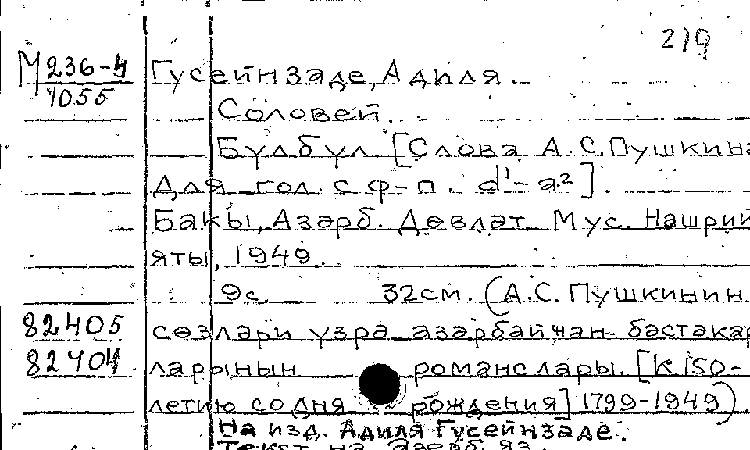 219
М 236-4
1055
Гусейнзаде, Адиля.
Соловей.
Булбул [Слова А.С.Пушкина
Для гол. с ф-п. d¹-a²].
Бакы, Азәрб. Девлат Мус. Нашрий
яты, 1949.
9с. 32см. (А.С. Пушкинин
82405 сөзлари узрә азәрбайҹан бәстәкар
82404 ларынын романслары. [К 150-
летию со дня рождения] 1799-1949)
На изд. Адиля Гусейнзаде.
Текст на азерб. яз.